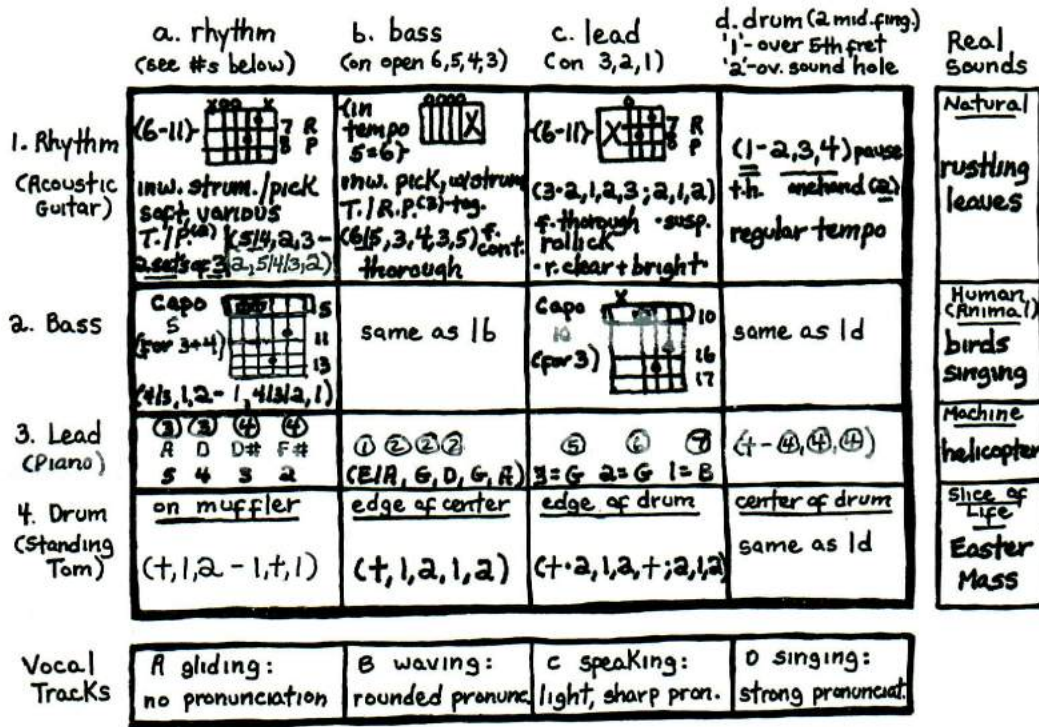 a. rhythm
(see #s below)
b. bass
(on open 6,5,4,3)
c. lead
(on 3,2,1)
d. drum (2 mid.fing.)
'1'-over 5th fret
'2'-ov. sound hole
Real
Sounds
1. Rhythm
(Acoustic
Guitar)
(6-11)
xoo x
7 R
8 P
inw. strum./pick
soft, various
T./P.(2) (5/4,2,3-
2 sets of 3 2,5/4/3,2)
(in
tempo
5=6)
oooo
X
inw. pick, w/strum
T./R.P.(3)-tog.
(6/5,3,4,3,5) f.
cont.
thorough
(6-11)
o
X
7 R
8 P
(3·2,1,2,3;2,1,2)
f. thorough -susp.
rollick
-r. clear + bright-
(1-2,3,4) pause
t.h. onehand (2)
regular tempo
Natural
rustling
leaves
2. Bass
Capo
5
(for 3+4)
5
11
13
(4/3,1,2- 1,4/3/2,1)
same as 1b
Capo
10
(for 3)
x
10
16
17
same as 1d
Human
(Animal)
birds
singing
3. Lead
(Piano)
3 3 4 4
A D D# F#
5 4 3 2
1 2 2 2
(E/A, G, D, G, A)
5 6 7
3=G 2=G 1=B
(t-4,4,4)
Machine
helicopter
4. Drum
(Standing
Tom)
on muffler
(t,1,2 - 1,t,1)
edge of center
(t,1,2,1,2)
edge of drum
(t·2,1,2,t;2,1,2)
center of drum
same as 1d
Slice of
Life
Easter
Mass
Vocal
Tracks
A gliding:
no pronunciation
B waving:
rounded pronunc.
C speaking:
light, sharp pron.
D singing:
strong pronunciat.